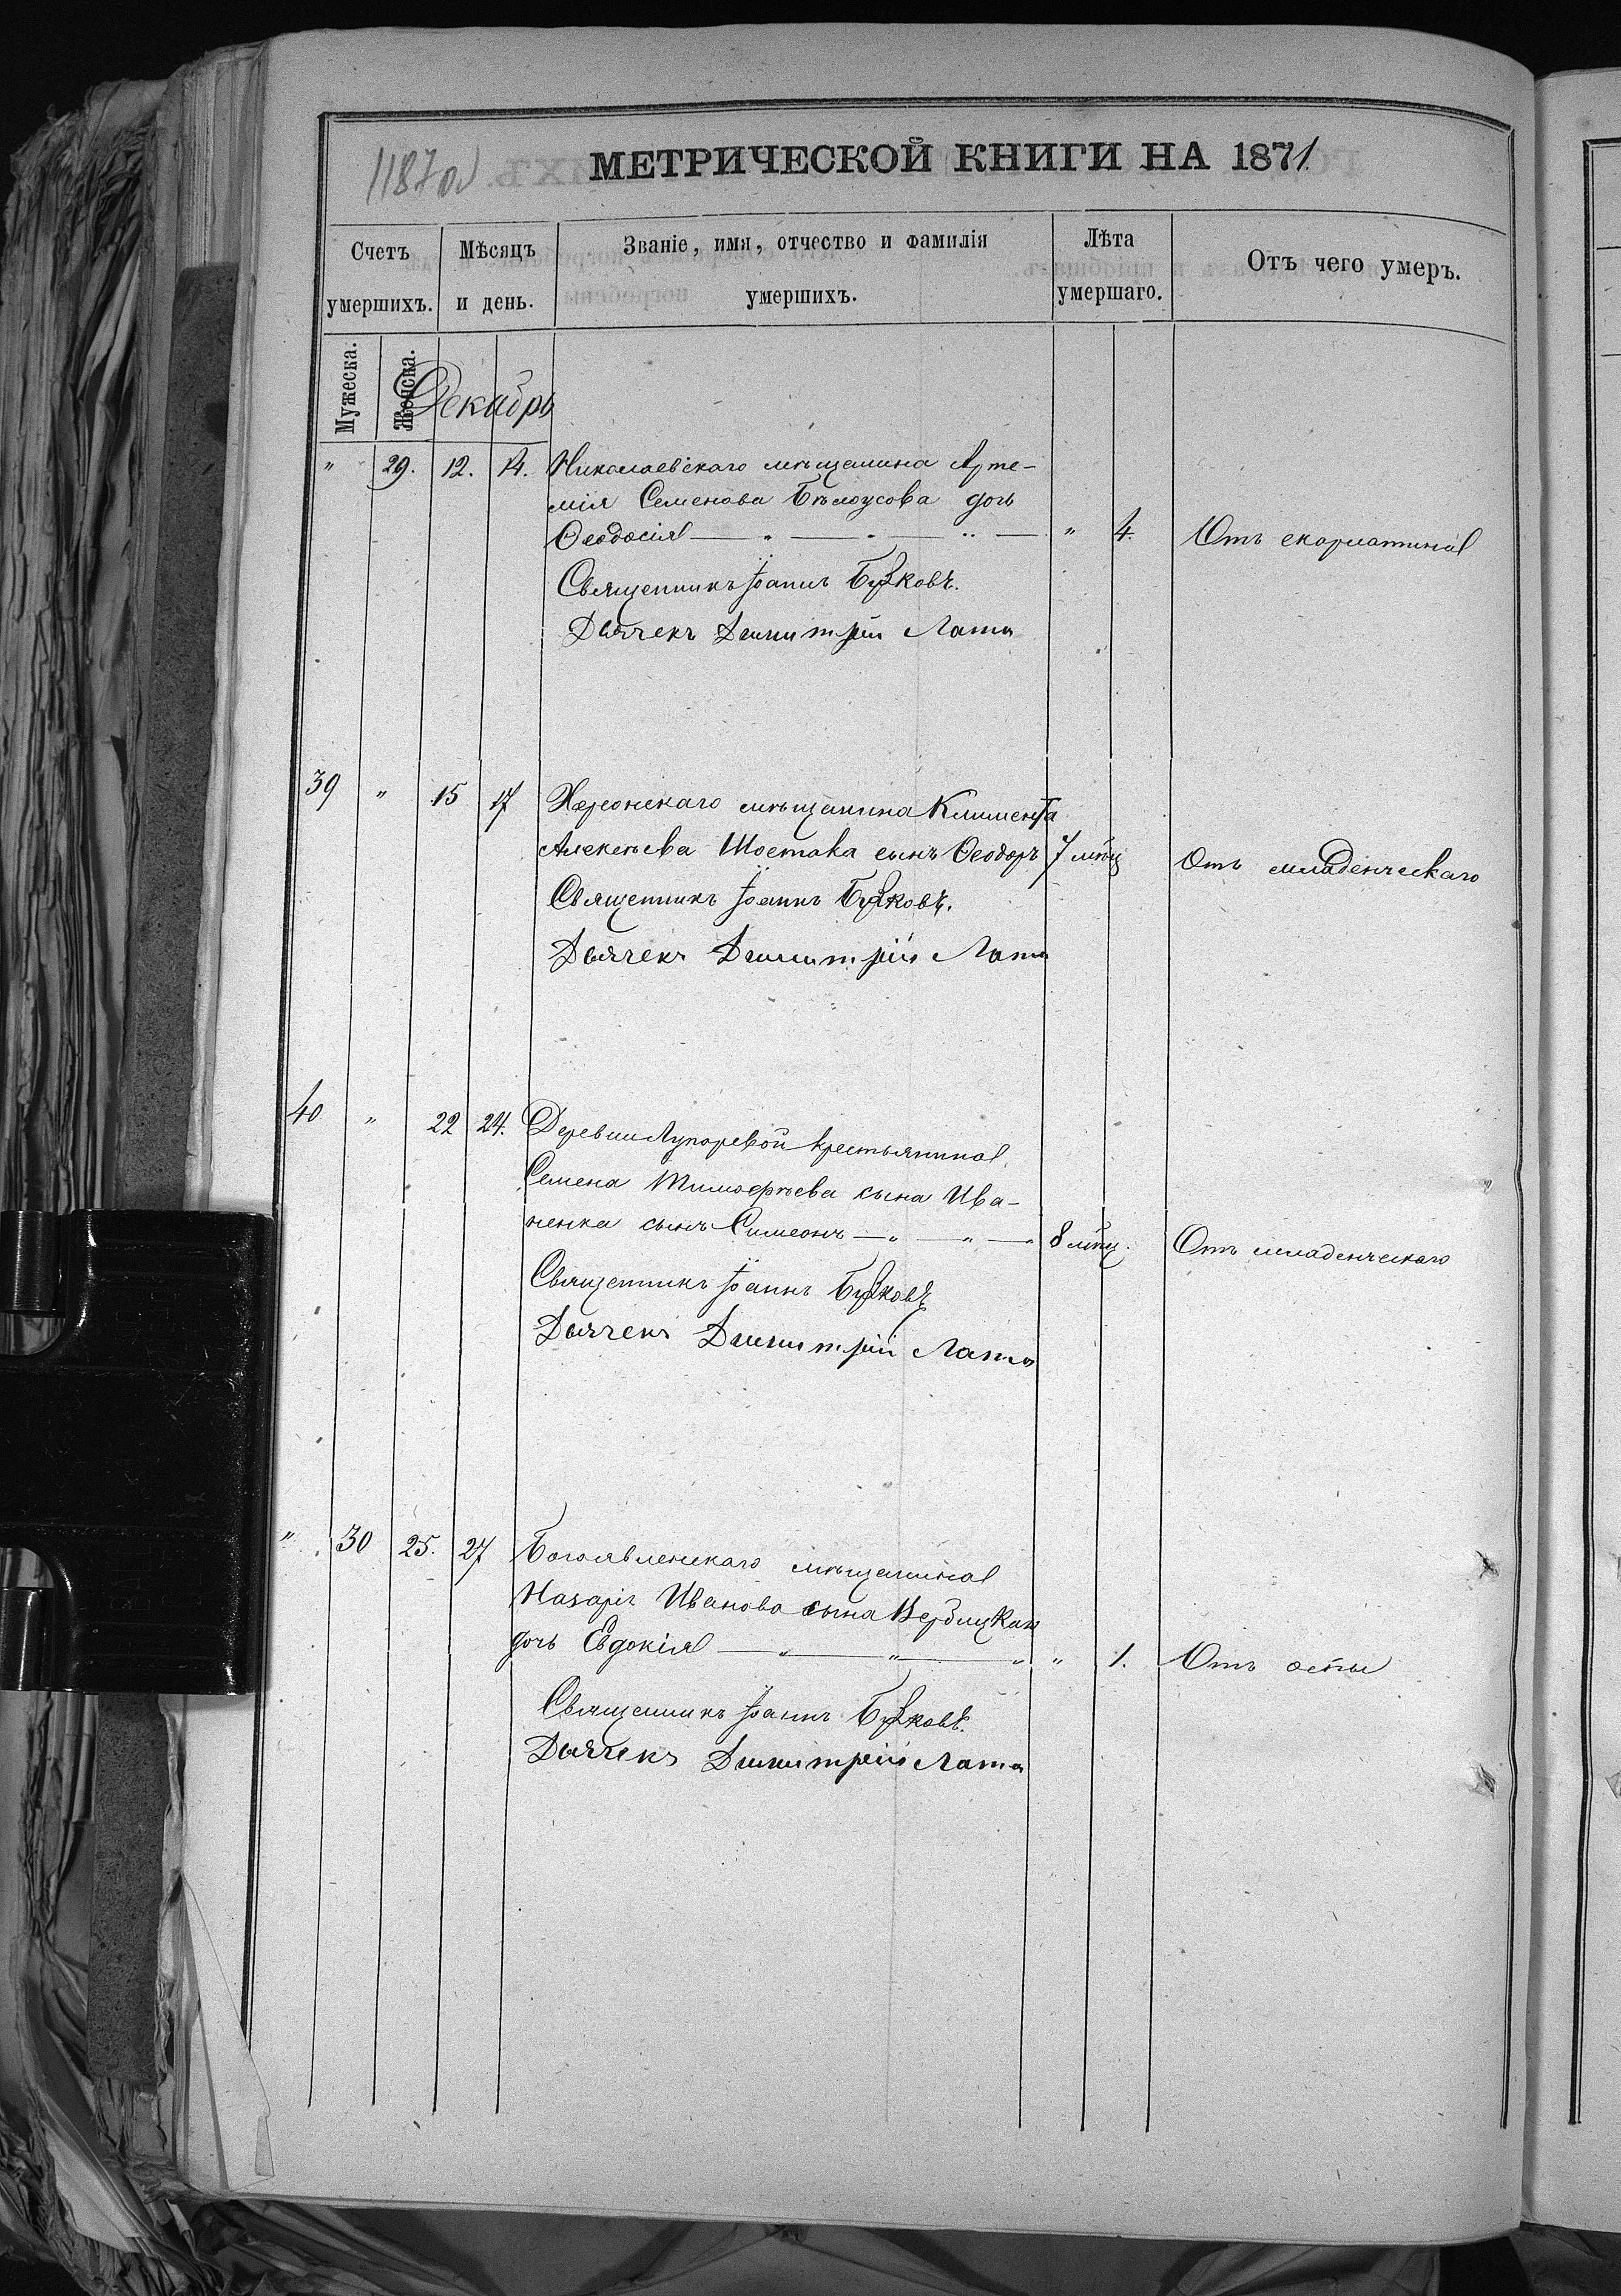 1187об
МЕТРИЧЕСКОЙ КНИГИ НА 1871.
Счетъ умершихъ.
Мѣсяцъ и день.
Званіе, имя, отчество и фамилія умершихъ.
Лѣта умершаго.
Отъ чего умеръ.
Мужеска.
Женска.
Декабрь
" 29. 12. 14. Николаевскаго мѣщанина Арте-
мія Семенова Бѣлоусова дочь
Ѳеодосія — " — " — " — " 4. Отъ скарлатины
Священникъ Іоаннъ Бужковъ.
Дьячекъ Димитрій Лата
39 " 15 17 Херсонскаго мѣщанина Климента
Алексѣева Шостака сынъ Ѳеодоръ 7 мѣц Отъ младенческаго
Священникъ Іоаннъ Бужковъ.
Дьячекъ Димитрій Лата
40 " 22 24. Деревни Лупаревой крестьянина
Семена Тимоѳеѣева сына Ива-
ненка сынъ Симеонъ — " — " — " 8 мѣц. Отъ младенческаго
Священникъ Іоаннъ Бужковъ
Дьячекъ Димитрій Лата
" 30 25. 27 Богоявленскаго мѣщанина
Назарія Иванова сына Вербицкаго
дочь Евдокія — " — " — " " 1. Отъ оспы
Священникъ Іоаннъ Бужковъ.
Дьячекъ Димитрій Лата